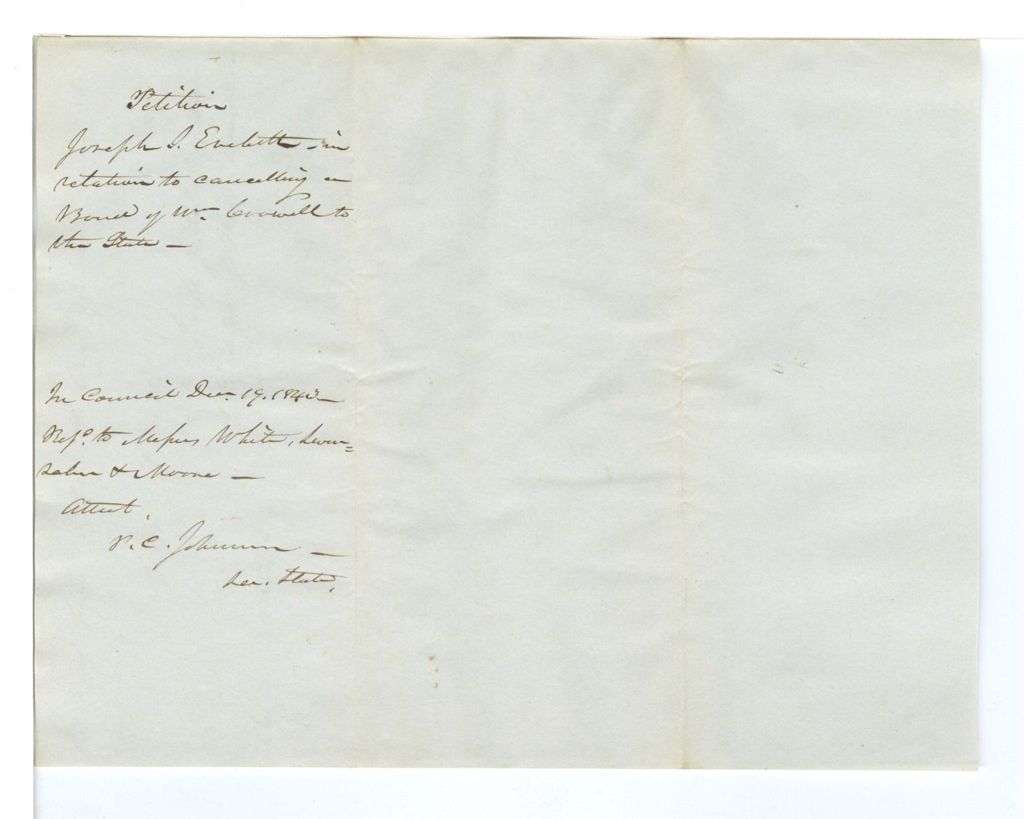 Petition
Joseph S. Evebeth - in
relation to cancelling a
Bond of Wm. Crowell to
the State —
In Council Dec. 19. 1842 —
Refd. to Messrs White,
& Moore —
Attest,
P. C. Johnson —
Sec. State,